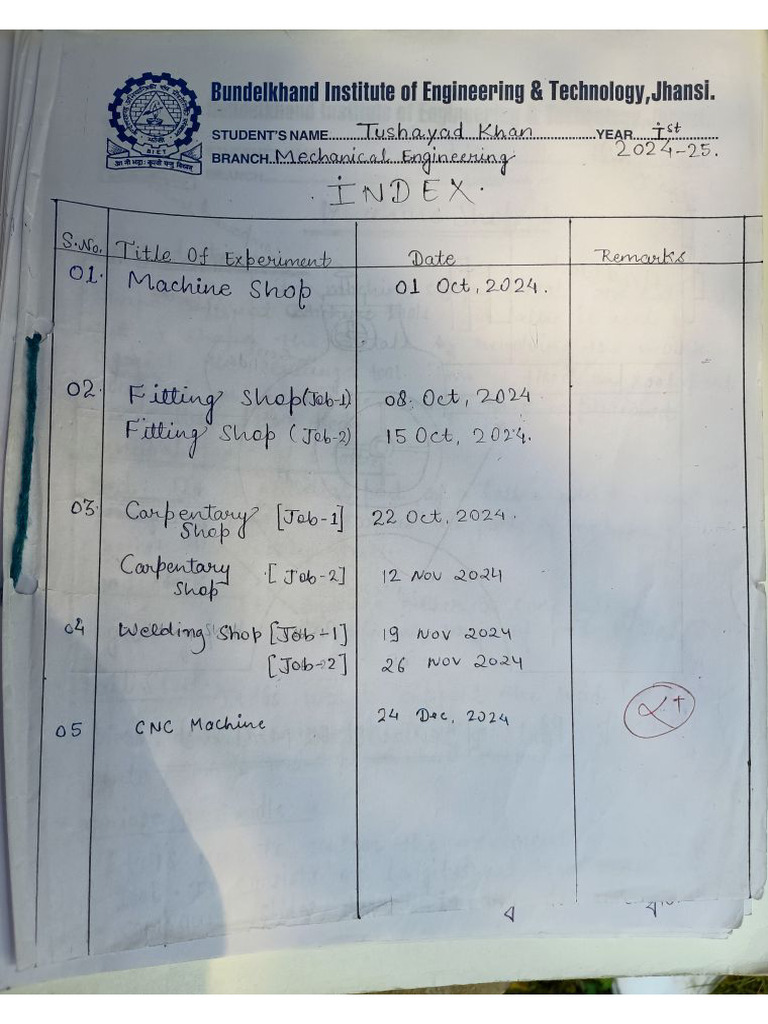 Bundelkhand Institute of Engineering & Technology, Jhansi.
STUDENT'S NAME Tushayad Khan YEAR Ist
2024-25.
BRANCH Mechanical Engineering
BIET
INDEX.
S.No. Title Of Experiment Date Remarks
01. Machine Shop 01 Oct, 2024.
02. Fitting Shop (Job-1) 08. Oct, 2024
Fitting Shop (Job-2) 15 Oct, 2024.
03. Carpentary [Job-1] 22 Oct, 2024.
Shop
Carpentary [Job-2] 12 Nov 2024
Shop
04 Welding Shop [Job-1] 19 Nov 2024
[Job-2] 26 Nov 2024
05 CNC Machine 24 Dec, 2024